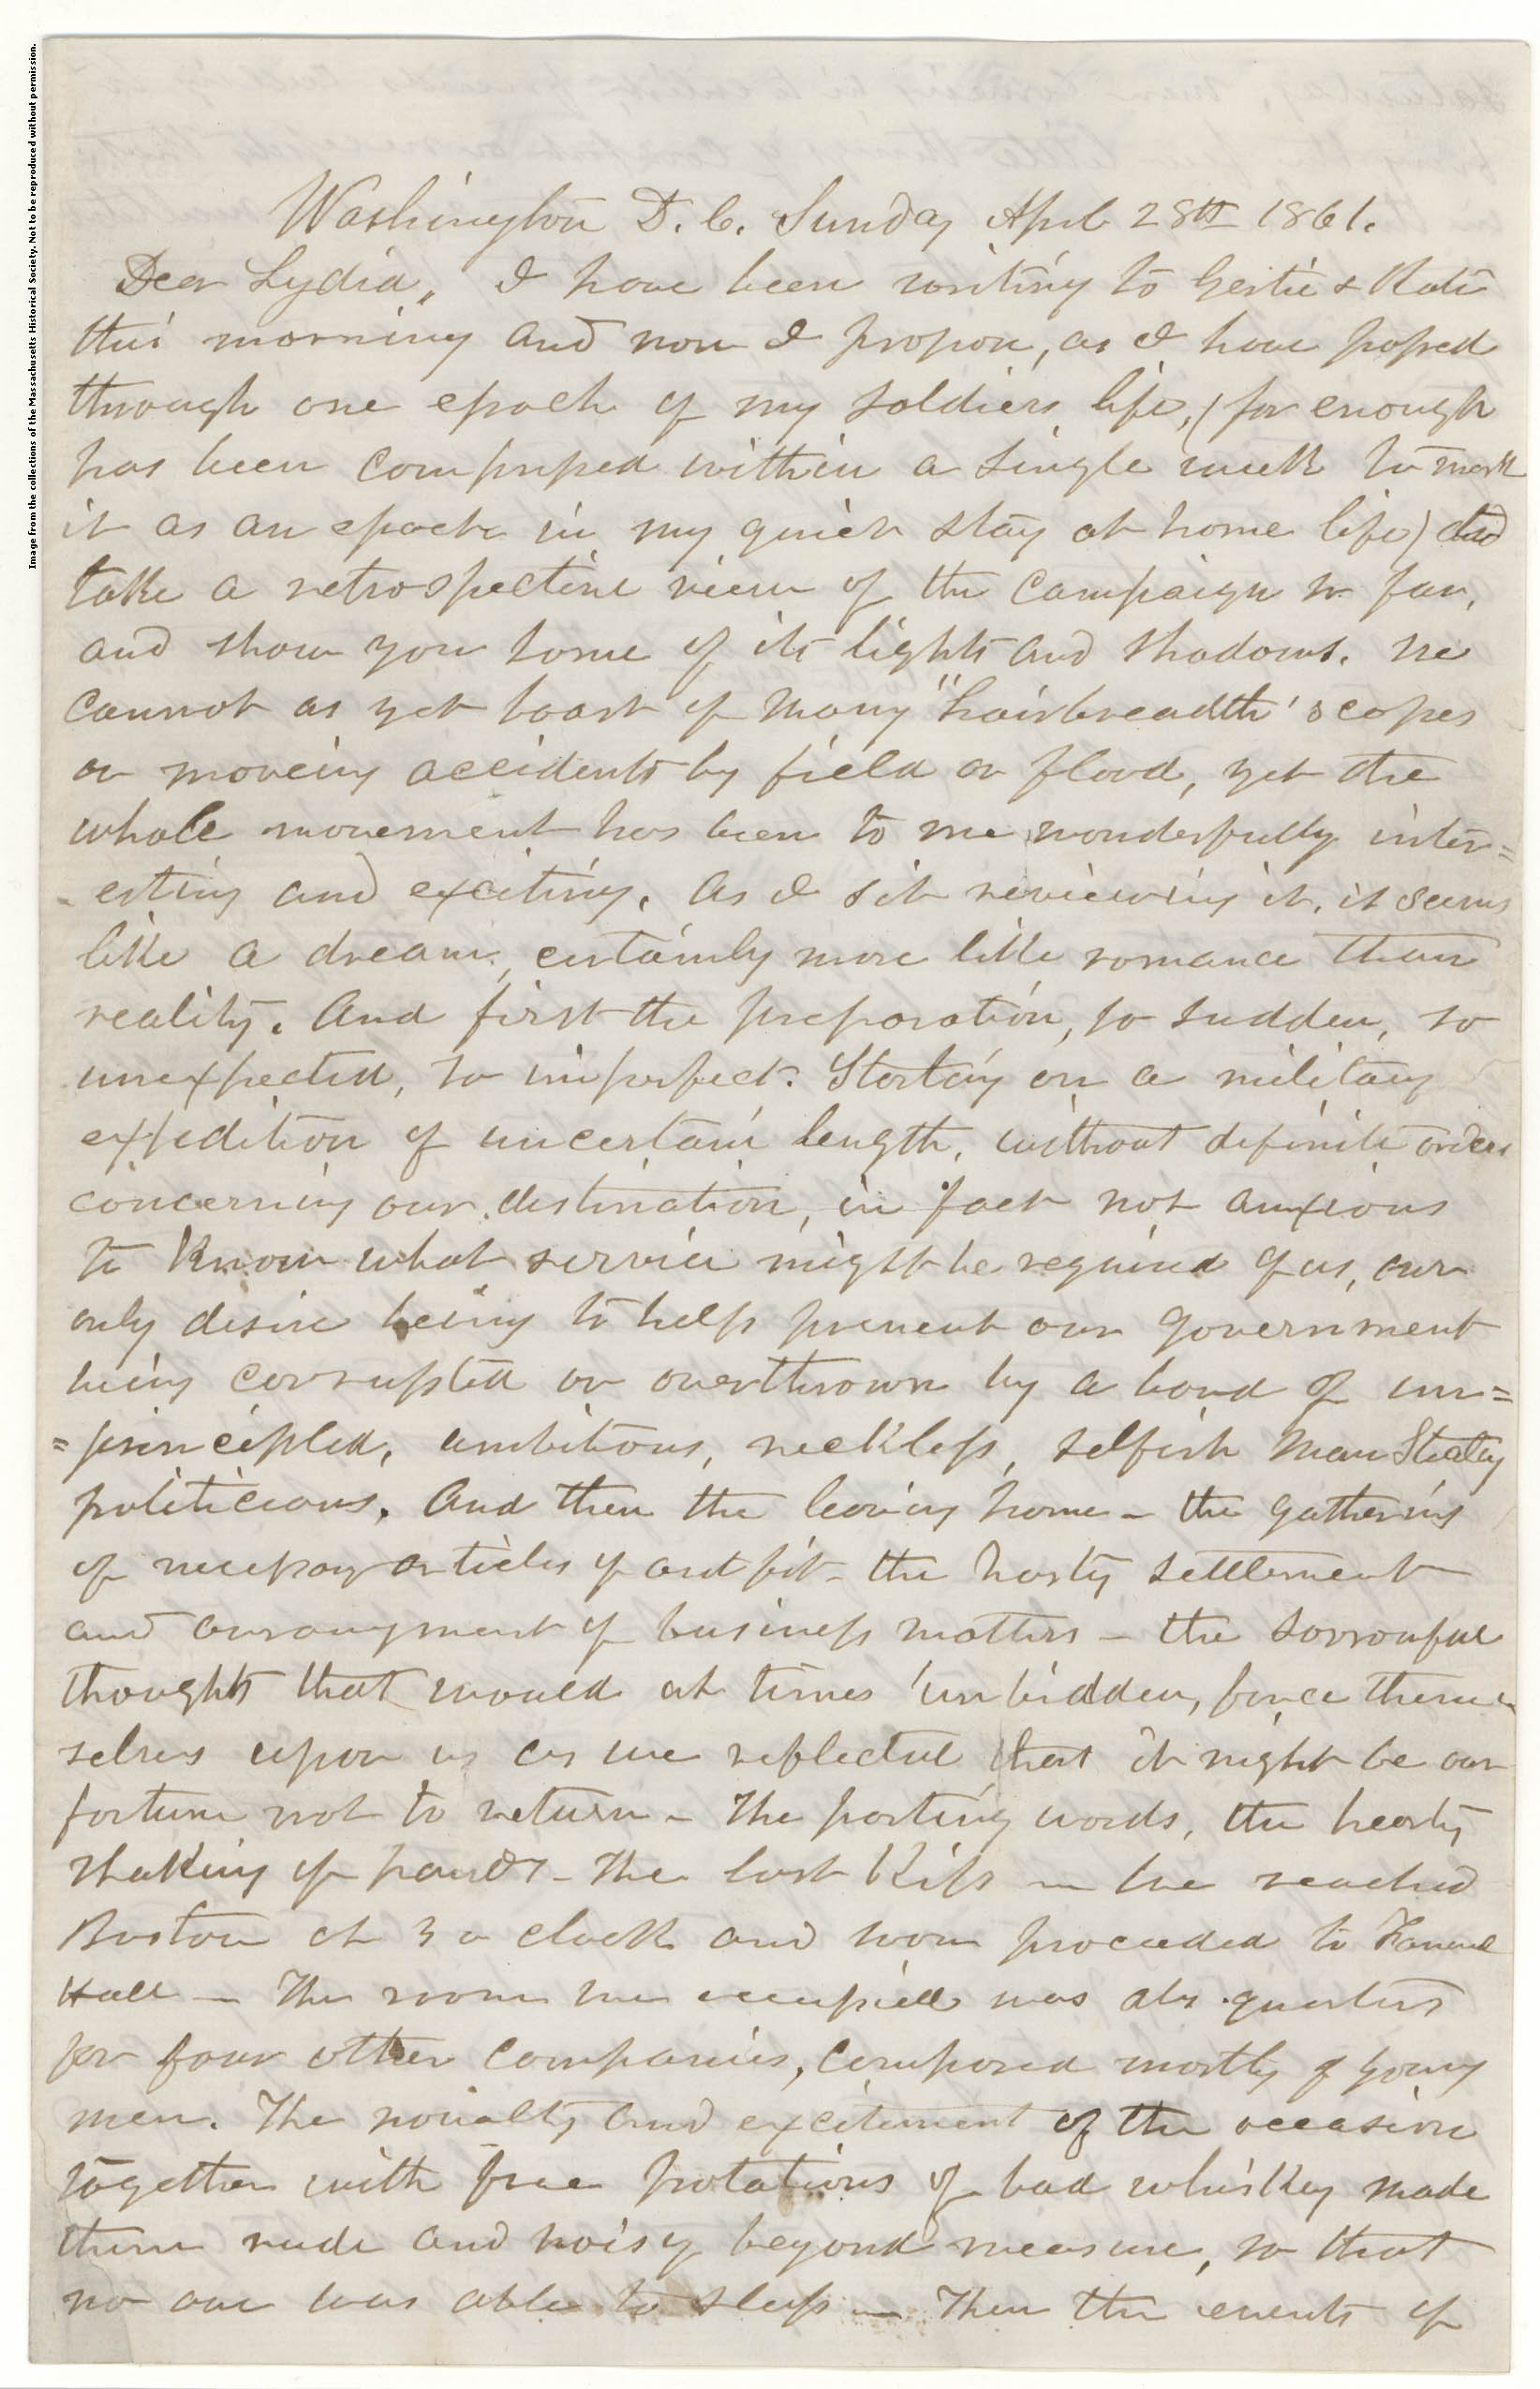 Image from the collections of the Massachusetts Historical Society. Not to be reproduced without permission.
Washington D. C. Sunday April 28th 1861.
Dear Lydia, I have been writing to Gertie & Kate
this morning and now I propose, as I have passed
through one epoch of my soldiers life, (for enough
has been compressed within a single week to mark
it as an epoch in my quiet stay at home life) to
take a retrospective view of the campaign so far,
and show you some of its lights and shadows. We
cannot as yet boast of many "hairbreadth 'scapes
or moveing accidents by field or flood, yet the
whole movement has been to me wonderfully inter=
-esting and exciting. As I sit reviewing it, it seems
like a dream, certainly more like romance than
reality. And first the preparation, so sudden, so
unexpected, so imperfect. Starting on a military
expedition of uncertain length, without definite orders
concerning our destination, in fact not anxious
to know what service might be required of us, our
only desire being to help prevent our government
being corrupted or overthrown by a band of un=
=principled, ambitious, reckless, selfish Man Stealing
politicians. And then the leaving home - the gathering
of necessary articles of outfit - the hasty settlement
and arrangment of business matters - the sorrowful
thoughts that would at times unbidden, force them
selves upon us as we reflected that it might be our
fortune not to return - The parting words, the hearty
shaking of hands - The last Kiss - We reached
Boston at 3 o clock and soon proceeded to Faneuil
Hall - The room we occupied was also quarters
for four other companies, composed mostly of young
men. The novelty and excitement of the occasion
together with free potations of bad whiskey made
them rude and noisy beyond measure, so that
no one was able to sleep - Then the events of